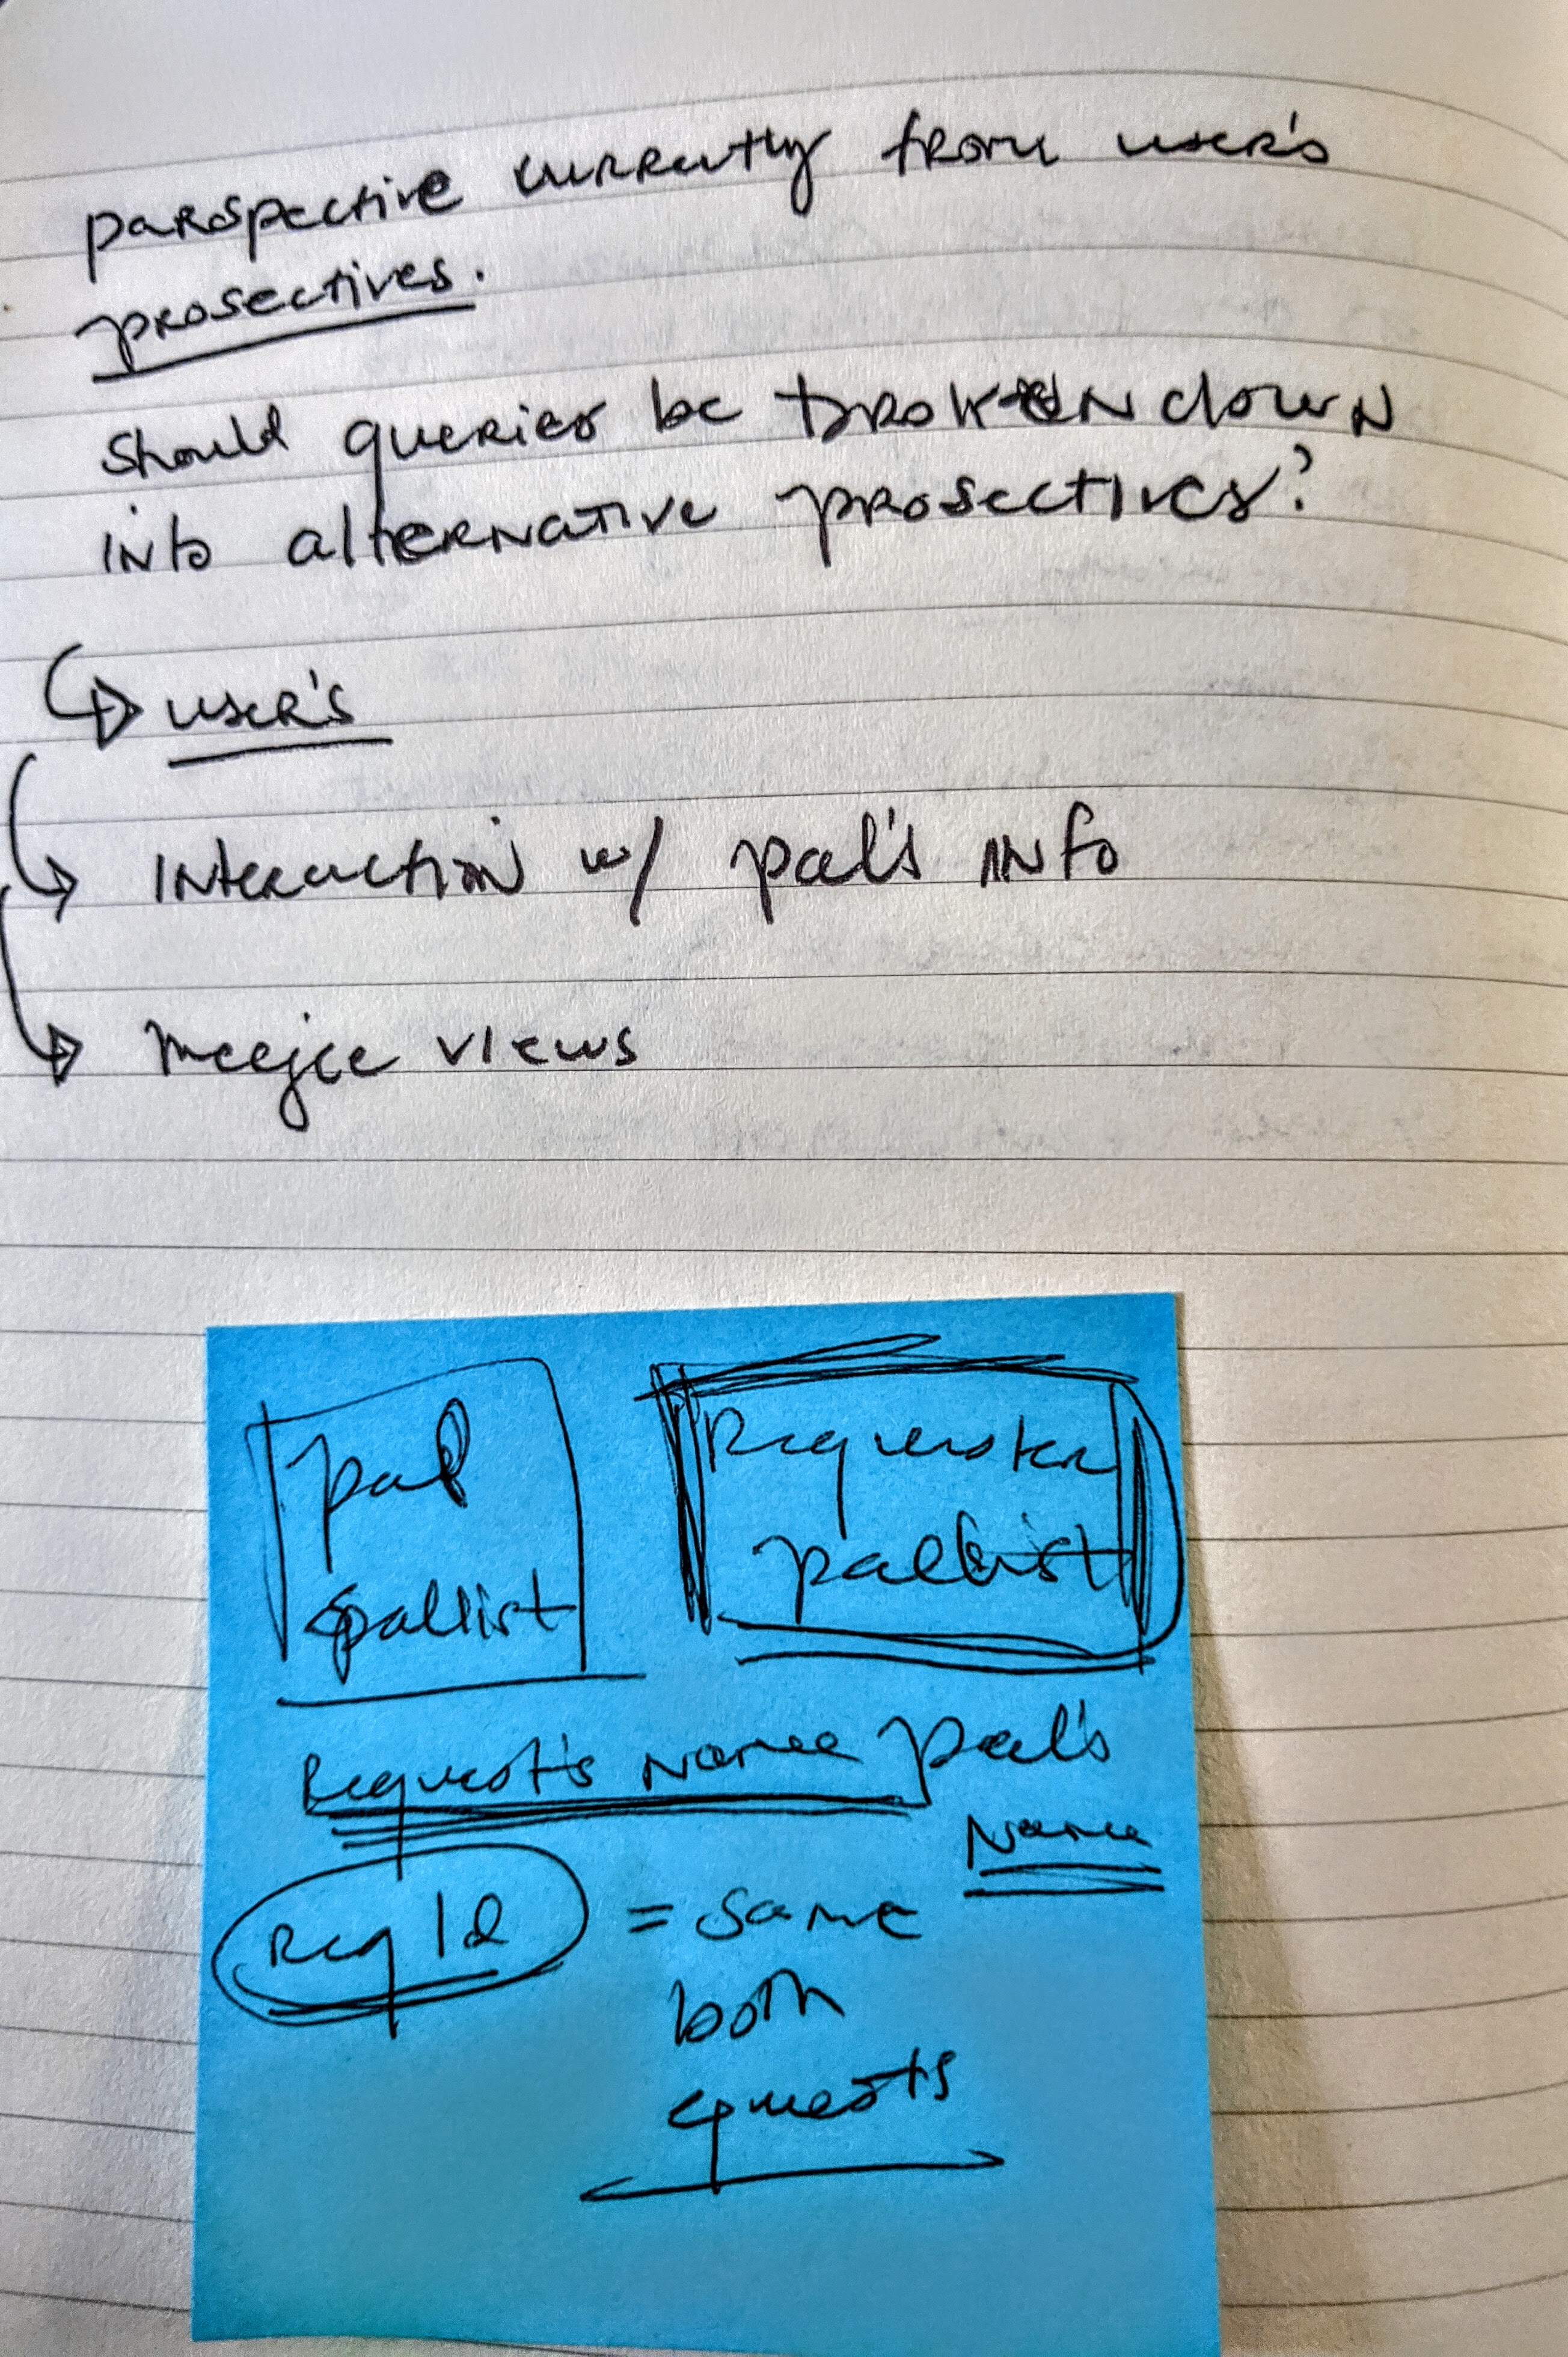 parspective currently from user's
prosectives.
should queries be broken down
into alternative prosectives?
user's
Interaction w/ pal's info
views
pal
pallist
Requester
pallist
Request's name pal's
Name
Req Id = same
both
quests